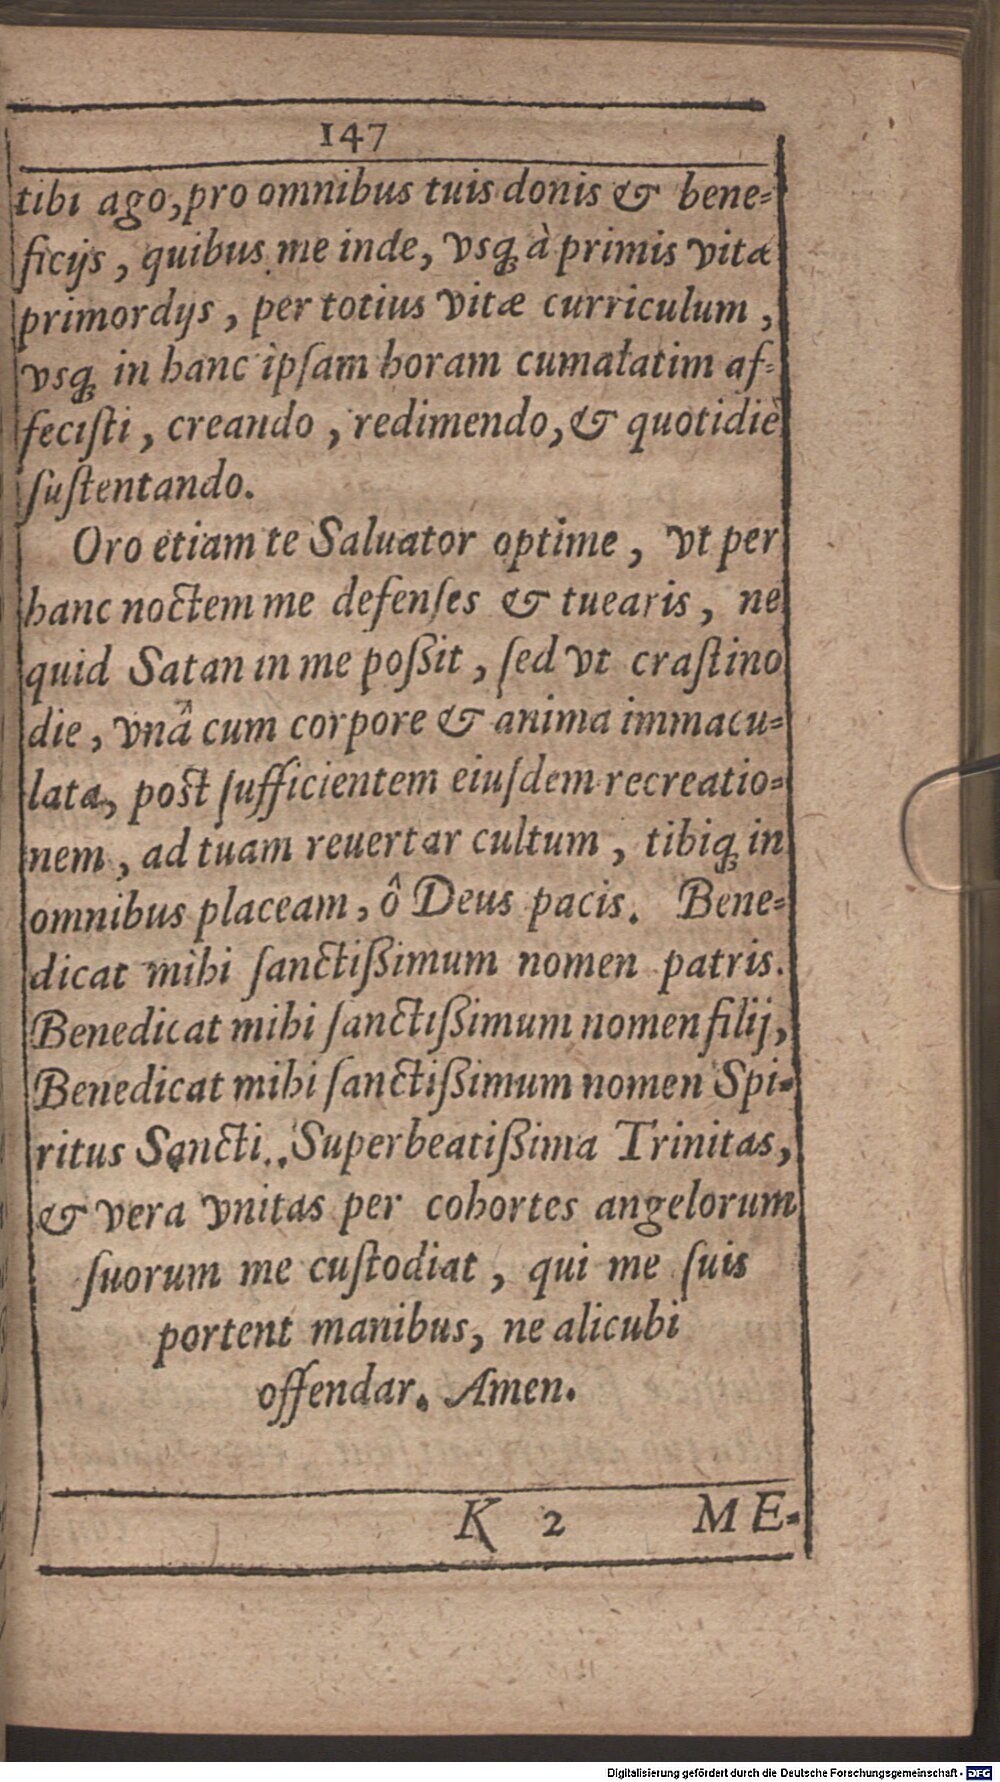 147
tibi ago, pro omnibus tuis donis & bene=
ficijs, quibus me inde, vsq; à primis vitæ
primordijs, per totius vitæ curriculum,
vsq; in hanc ipſam horam cumalatim af=
feciſti, creando, redimendo, & quotidiè
ſuſtentando.
Oro etiam te Saluator optime, vt per
hanc noctem me defenſes & tuearis, ne
quid Satan in me poßit, ſed vt craſtino
die, vnâ cum corpore & anima immacu=
lata, poſt ſufficientem eiuſdem recreatio=
nem, ad tuam reuertar cultum, tibiq; in
omnibus placeam, ô Deus pacis. Bene=
dicat mihi ſanctißimum nomen patris.
Benedicat mihi ſanctißimum nomen filij,
Benedicat mihi ſanctißimum nomen Spi=
ritus Sancti. Superbeatißima Trinitas,
& vera vnitas per cohortes angelorum
ſuorum me cuſtodiat, qui me ſuis
portent manibus, ne alicubi
offendar. Amen.
K 2 ME=
Digitalisierung gefördert durch die Deutsche Forschungsgemeinschaft - DFG